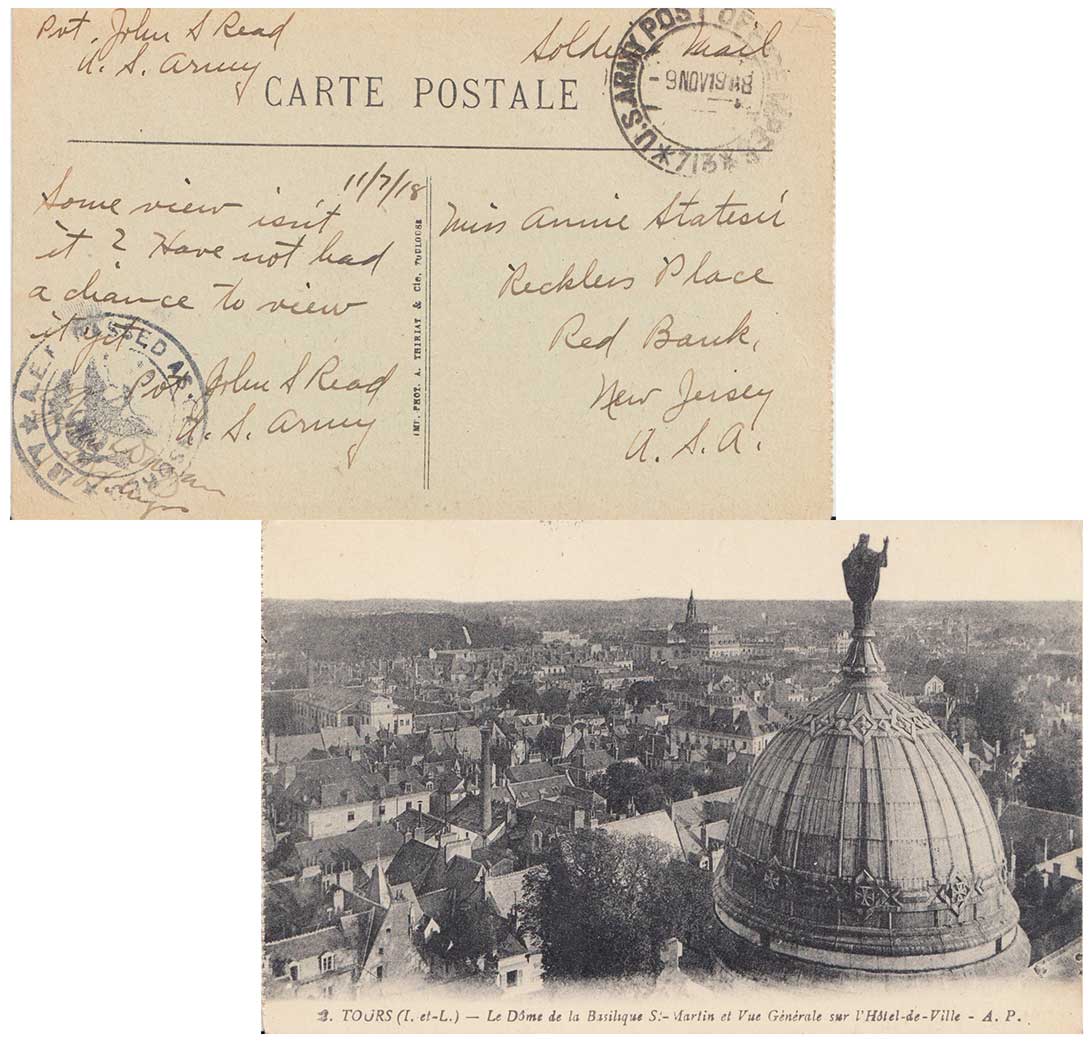 Pvt. John S Read
U. S. Army
Soldier's Mail
CARTE POSTALE
U.S. ARMY POST OFFICE
- 9 NOV 1918
* 713 *
11/7/18
Some view isn't
it? Have not had
a chance to view
it yet
Pvt. John S Read
U. S. Army
A.E.F. PASSED AS
IMP. PHOT. A. THIRIAT & Cie, TOULOUSE
Miss Annie Statesir
Reckless Place
Red Bank,
New Jersey
U. S. A.
2. TOURS (I. et-L.) — Le Dôme de la Basilique St-Martin et Vue Générale sur l'Hôtel-de-Ville - A. P.